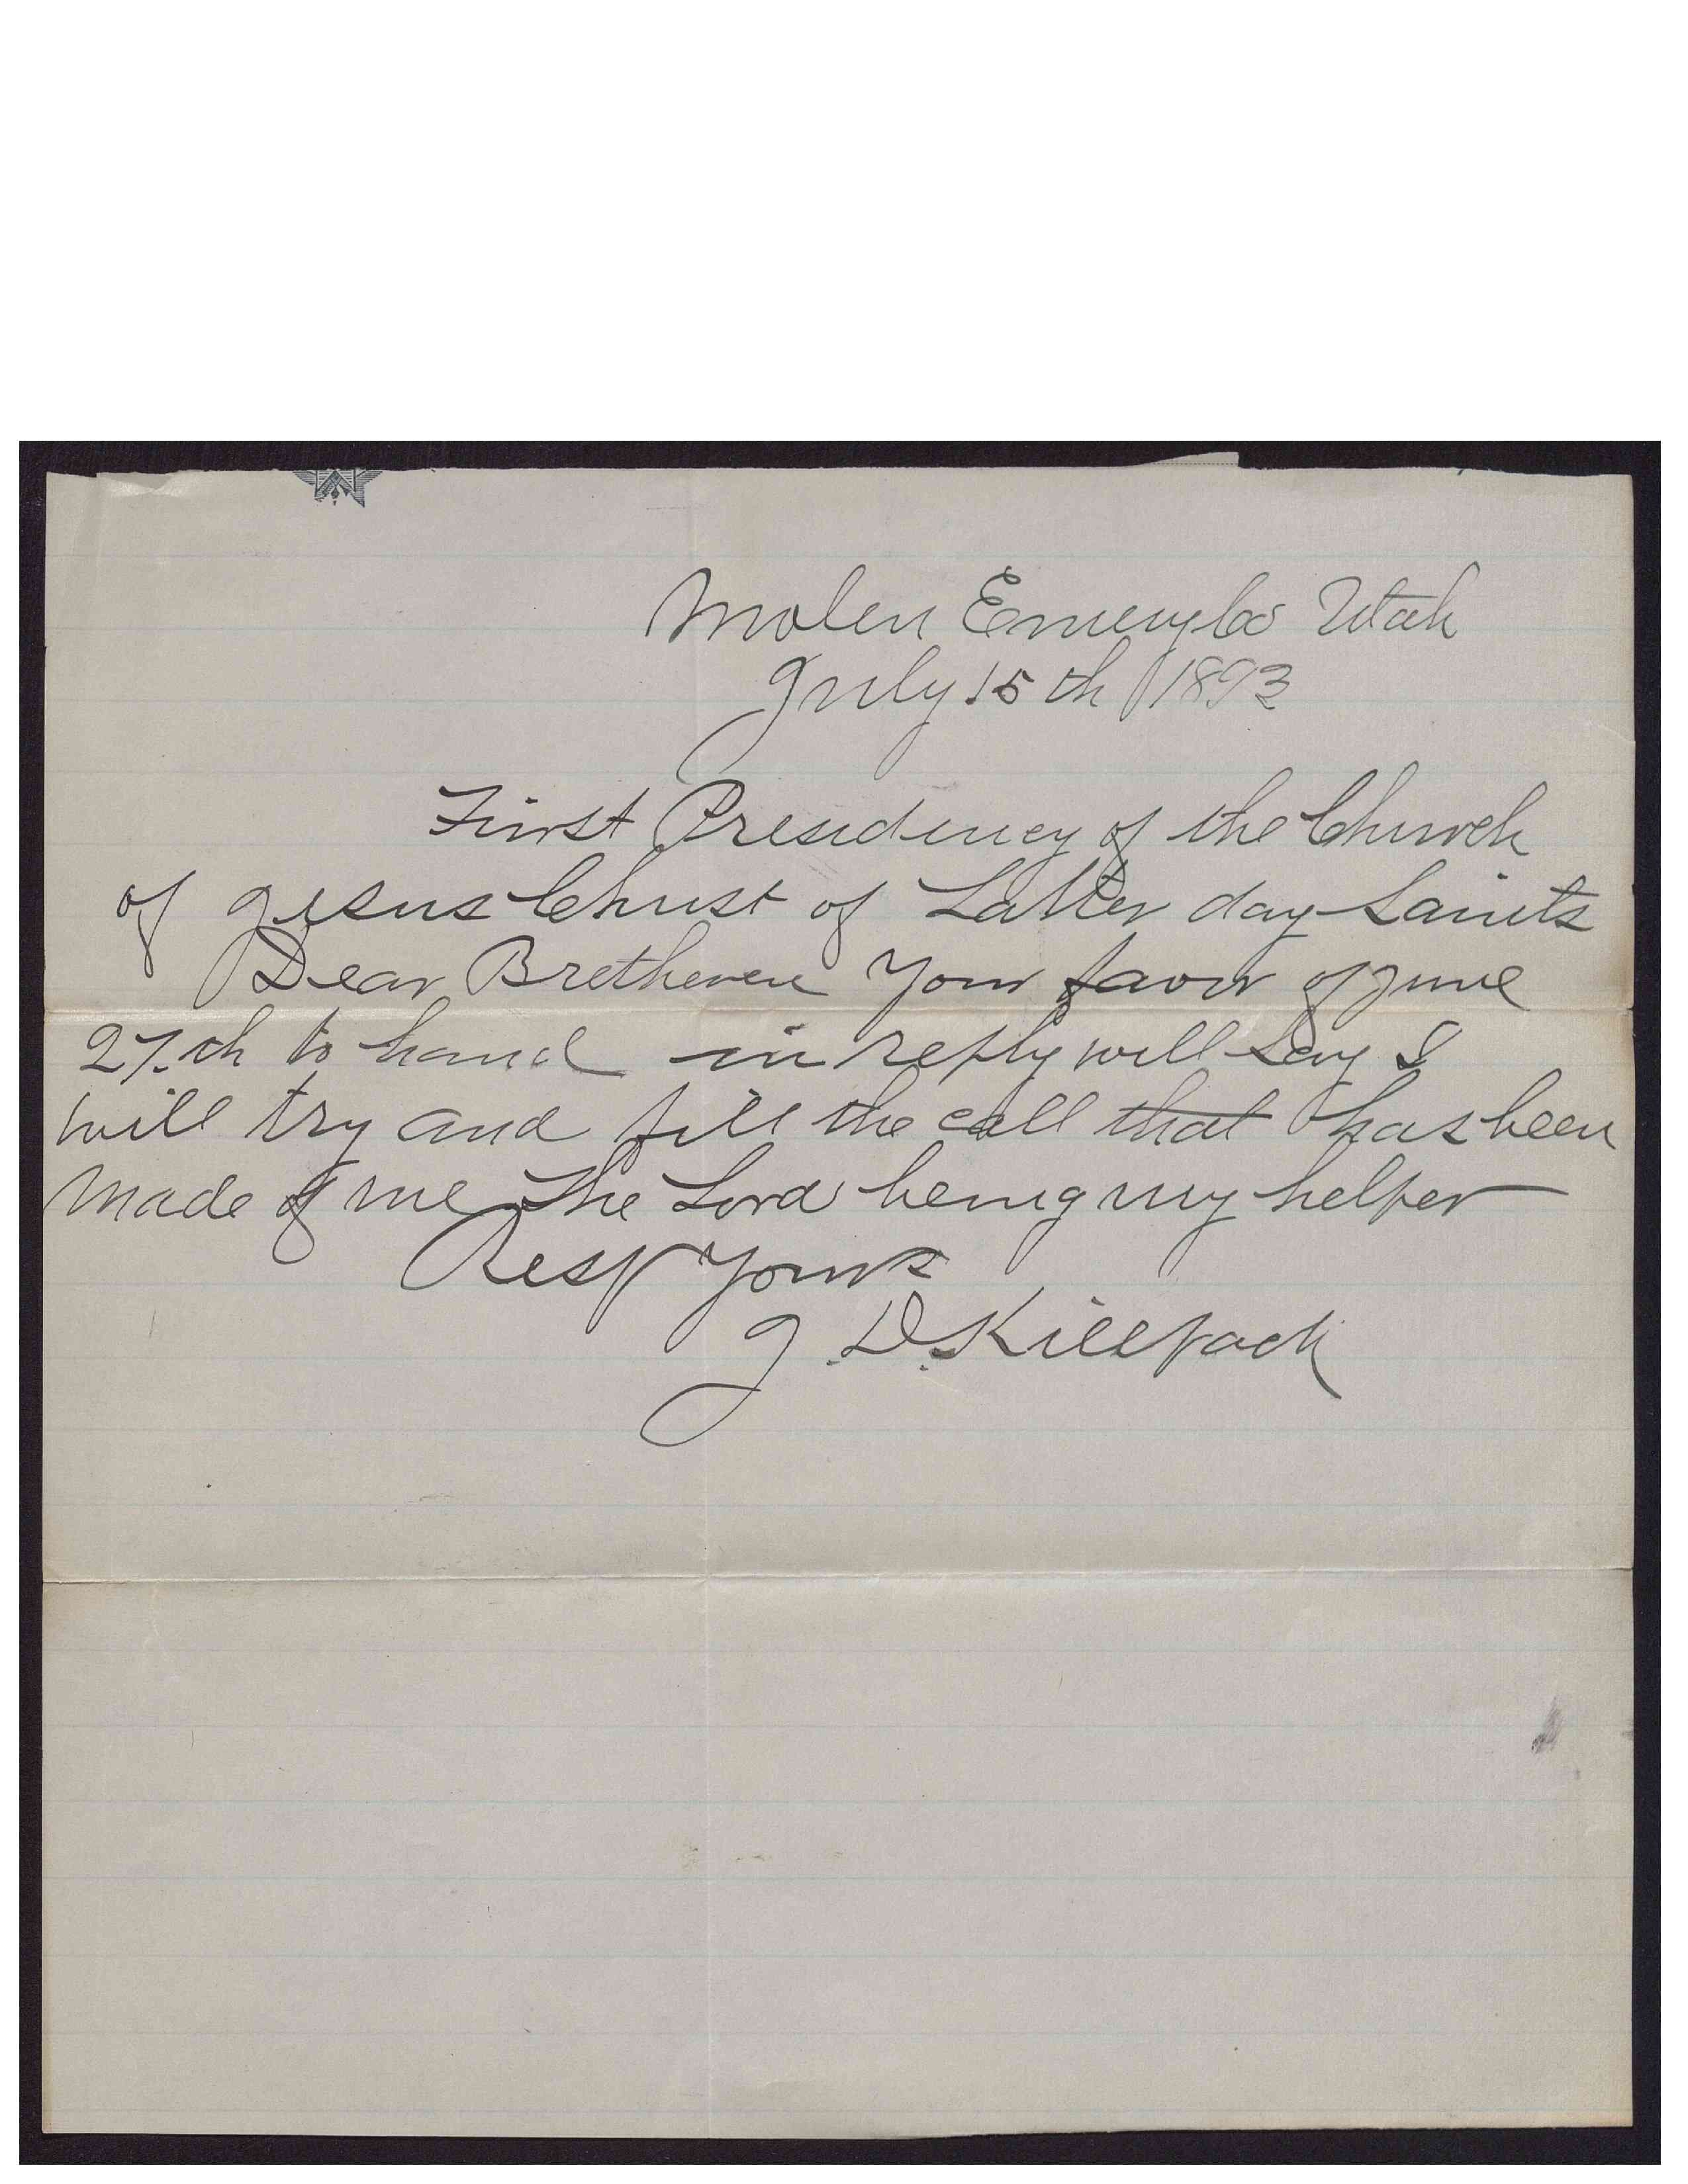 Molen Emery Co Utah
July 15th 1893
First Presidency of the Church
of Jesus Christ of Latter day Saints
Dear Bretheren Your favor of June
27th to hand in reply will Say I
will try and fill the call that has been
made of me The Lord being my helper
Resp Yours
J. D. Killpack